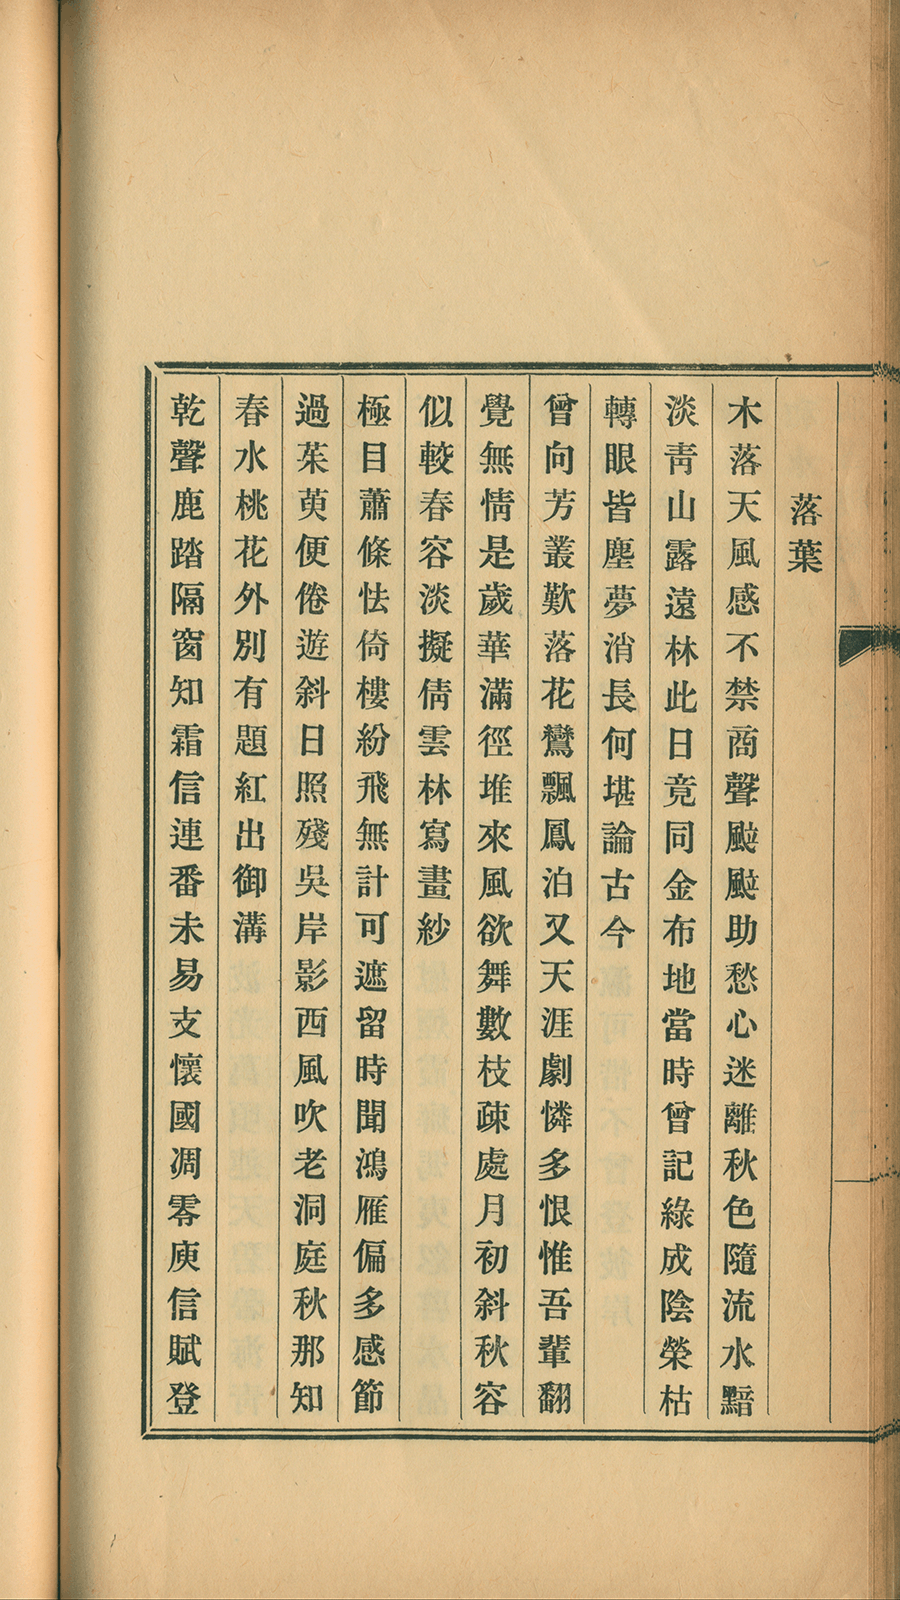 落葉
木落天風感不禁商聲颼颼助愁心迷離秋色隨流水黯
淡靑山露遠林此日竟同金布地當時曾記綠成陰榮枯
轉眼皆塵夢消長何堪論古今
曾向芳叢歎落花鸞飄鳳泊又天涯劇憐多恨惟吾輩翻
覺無情是歲華滿徑堆來風欲舞數枝疎處月初斜秋容
似較春容淡擬倩雲林寫畫紗
極目蕭條怯倚樓紛飛無計可遮留時聞鴻雁偏多感節
過茱萸便倦遊斜日照殘吳岸影西風吹老洞庭秋那知
春水桃花外別有題紅出御溝
乾聲鹿踏隔窗知霜信連番未易支懷國凋零庾信賦登